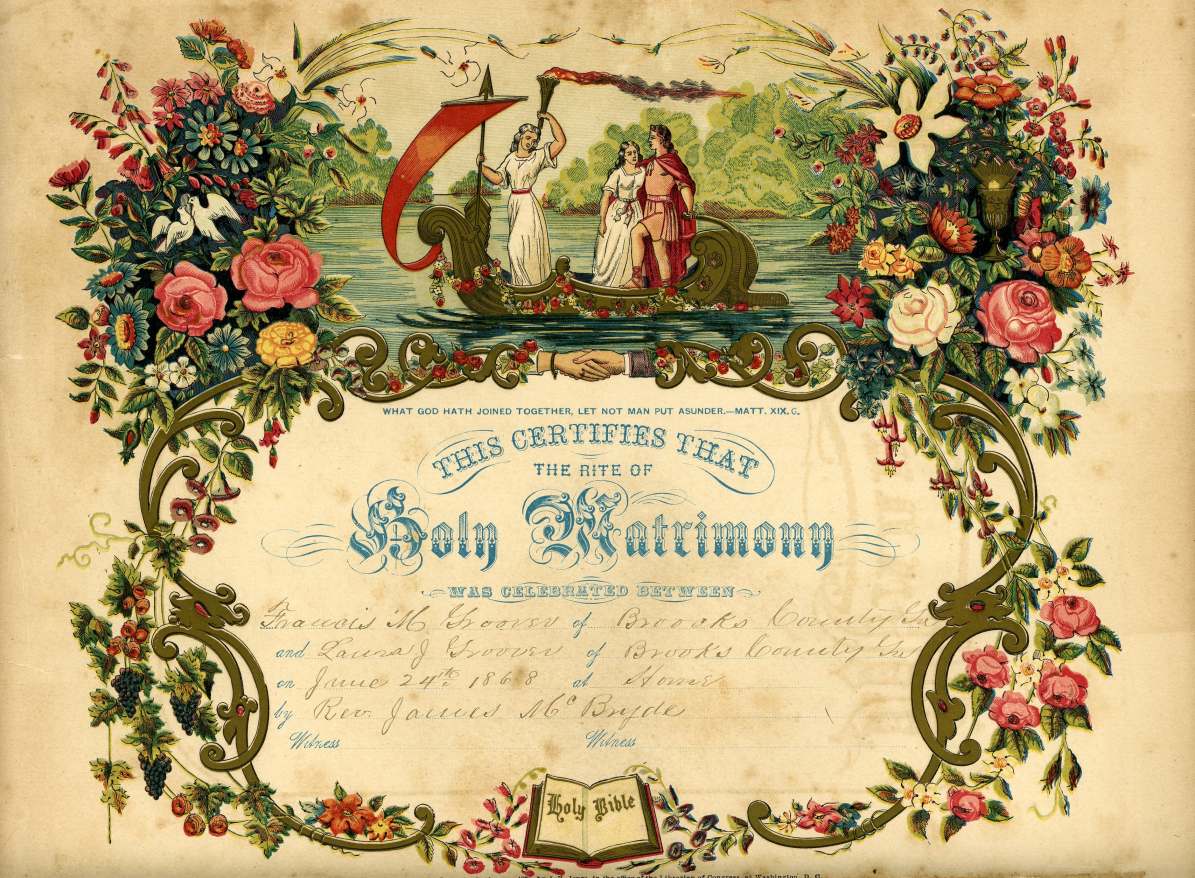 WHAT GOD HATH JOINED TOGETHER, LET NOT MAN PUT ASUNDER.—MATT. XIX. 6.
THIS CERTIFIES THAT
THE RITE OF
Holy Matrimony
WAS CELEBRATED BETWEEN
Francis M. Groover of Broocks County Ga
and Laura J Groover of Brooks County Ga
on June 24th 1868 at Home
by Rev. James Mc Bryde
Witness Witness
Holy Bible
in the office of the Librarian of Congress, at Washington, D. C.